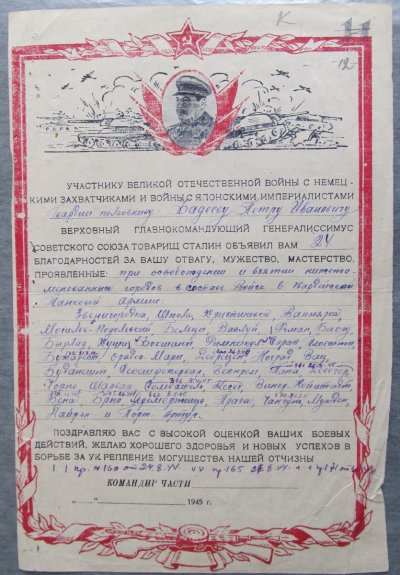 К
12
УЧАСТНИКУ ВЕЛИКОЙ ОТЕЧЕСТВЕННОЙ ВОЙНЫ С НЕМЕЦ-
КИМИ ЗАХВАТЧИКАМИ И ВОЙНЫ С ЯПОНСКИМИ ИМПЕРИАЛИСТАМИ
гвардии полковнику Бадееву Петру Ивановичу
ВЕРХОВНЫЙ ГЛАВНОКОМАНДУЮЩИЙ ГЕНЕРАЛИССИМУС
СОВЕТСКОГО СОЮЗА ТОВАРИЩ СТАЛИН ОБЪЯВИЛ ВАМ 24
БЛАГОДАРНОСТЕЙ ЗА ВАШУ ОТВАГУ, МУЖЕСТВО, МАСТЕРСТВО,
ПРОЯВЛЕННЫЕ: при освобождении и взятии нижепо-
менованных городов в составе войск 6 Гвардейской
Танковой Армии.
Звенигородка, Шпола, Христиновка, Вапнярка,
Могилев-Подольский, Бельцы, Васлуй, Роман, Бакэу,
Бырлад, Хуши, Фокшани,
Бухарест, Дебрецен, Ноград, Вац,
Будапешт, Секешфехервар, Веспрем, Папа, Девечер,
Чорно, Шарвар, Кёсег, Винер-Нейштадт,
Вена, Брно, Прага, Чанчунь, Мукден,
Дайрен и Порт-Артур.
ПОЗДРАВЛЯЮ ВАС С ВЫСОКОЙ ОЦЕНКОЙ ВАШИХ БОЕВЫХ
ДЕЙСТВИЙ, ЖЕЛАЮ ХОРОШЕГО ЗДОРОВЬЯ И НОВЫХ УСПЕХОВ В
БОРЬБЕ ЗА УКРЕПЛЕНИЕ МОГУЩЕСТВА НАШЕЙ ОТЧИЗНЫ
пр. №160 от 24.8.44 пр 165
КОМАНДИР ЧАСТИ
1945 г.